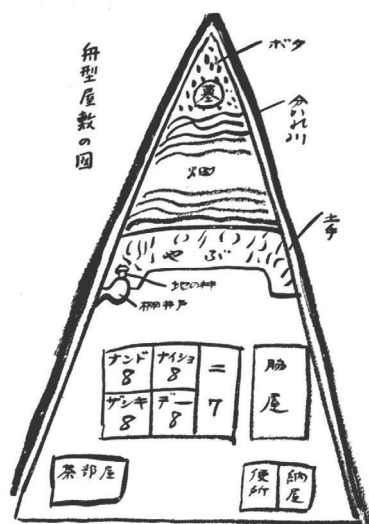 舟型屋敷の図
ボタ
墓
分かれ川
畑
土手
やぶ
地の神
柳井戸
ナンド
8
ナイショ
8
ニ
7
ザシキ
8
デー
8
脇屋
茶部屋
便所
納屋